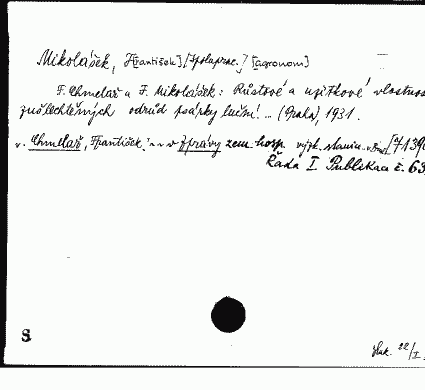 Mikolášek, [František] [Spoluprac.] [agronom]
F. Chmelař a F. Mikolášek: Růstové a užitkové vlastnos
zušlechtěných odrůd psárky luční ... (Praha), 1931.
v. Chmelař, František: ~~ v Zprávy zem. hosp. výzk. stanic v Brně [471390
Řada I. Publikace č. 63
S
22/I.